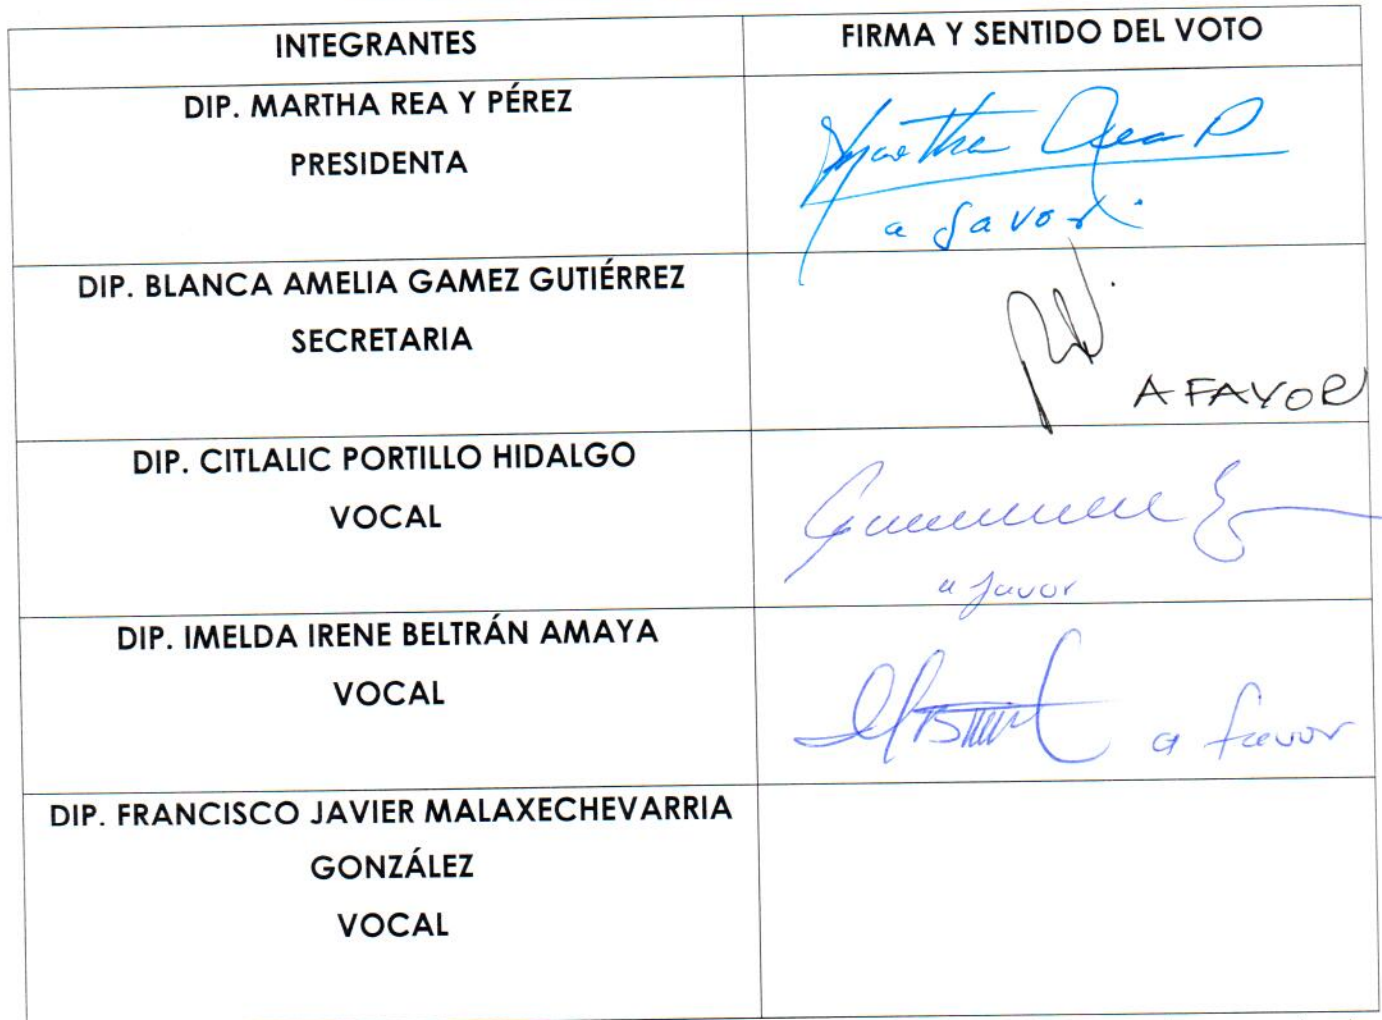 INTEGRANTES
FIRMA Y SENTIDO DEL VOTO
DIP. MARTHA REA Y PÉREZ
PRESIDENTA
Martha Rea P
a favor.
DIP. BLANCA AMELIA GAMEZ GUTIÉRREZ
SECRETARIA
A FAVOR
DIP. CITLALIC PORTILLO HIDALGO
VOCAL
a favor
DIP. IMELDA IRENE BELTRÁN AMAYA
VOCAL
a favor
DIP. FRANCISCO JAVIER MALAXECHEVARRIA
GONZÁLEZ
VOCAL